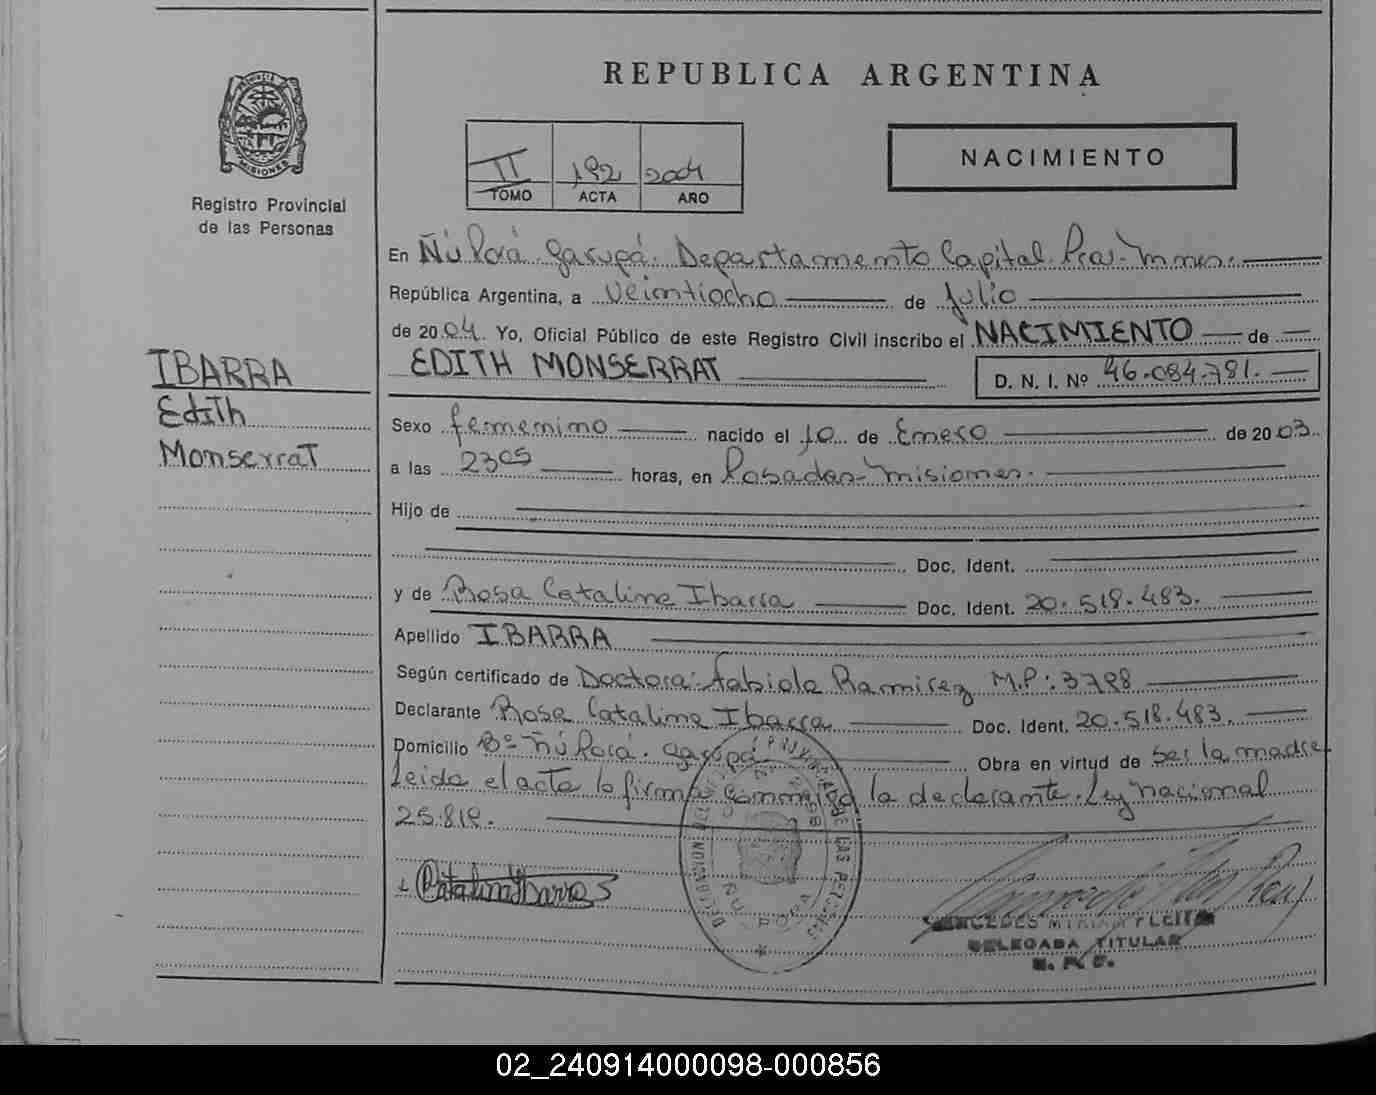 REPUBLICA ARGENTINA
PROVINCIA DE
MISIONES
Registro Provincial
de las Personas
II 192 2004
TOMO ACTA AÑO
NACIMIENTO
En Ñú Porá. Garupá. Departamento Capital. Pcia. Mnes.
República Argentina, a Veintiocho de Julio
de 2004. Yo, Oficial Público de este Registro Civil inscribo el NACIMIENTO de
IBARRA
Edith
Monserrat
EDITH MONSERRAT D. N. I. Nº 46.084.781.
Sexo femenino nacido el 10 de Enero de 2003
a las 2305 horas, en Posadas-Misiones.
Hijo de
Doc. Ident.
y de Rosa Catalina Ibarra Doc. Ident. 20.518.483.
Apellido IBARRA
Según certificado de Doctora: Fabiola Ramirez M.P: 3788
Declarante Rosa Catalina Ibarra Doc. Ident. 20.518.483.
Domicilio Bº Ñú Porá. Garupá Obra en virtud de ser la madre
Leida el acta la firma conmigo la declarante. Ley nacional
25.819.
Catalina Ibarra
ÑU PORA
MERCEDES MIRIAM FLEITA
DELEGADA TITULAR
02_240914000098-000856